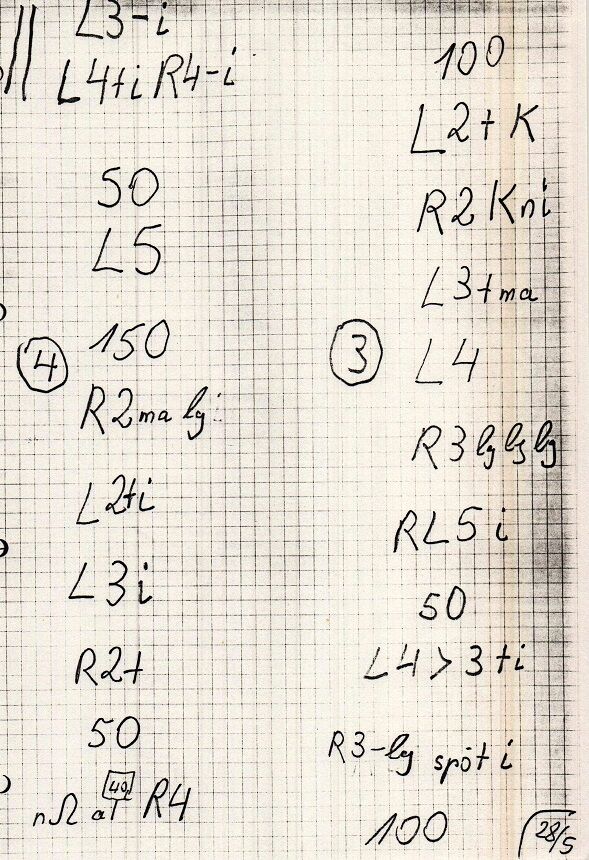 L3-i
L4ti R4-i
50
L5
④ 150
R2 ma lg
L2ti
L3i
R2+
50
nΩ at 40 R4
100
L2+K
R2 Kni
L3+ma
③ L4
R3 lg lg lg
RL5i
50
L4>3ti
R3-lg spöt i
100
28/5